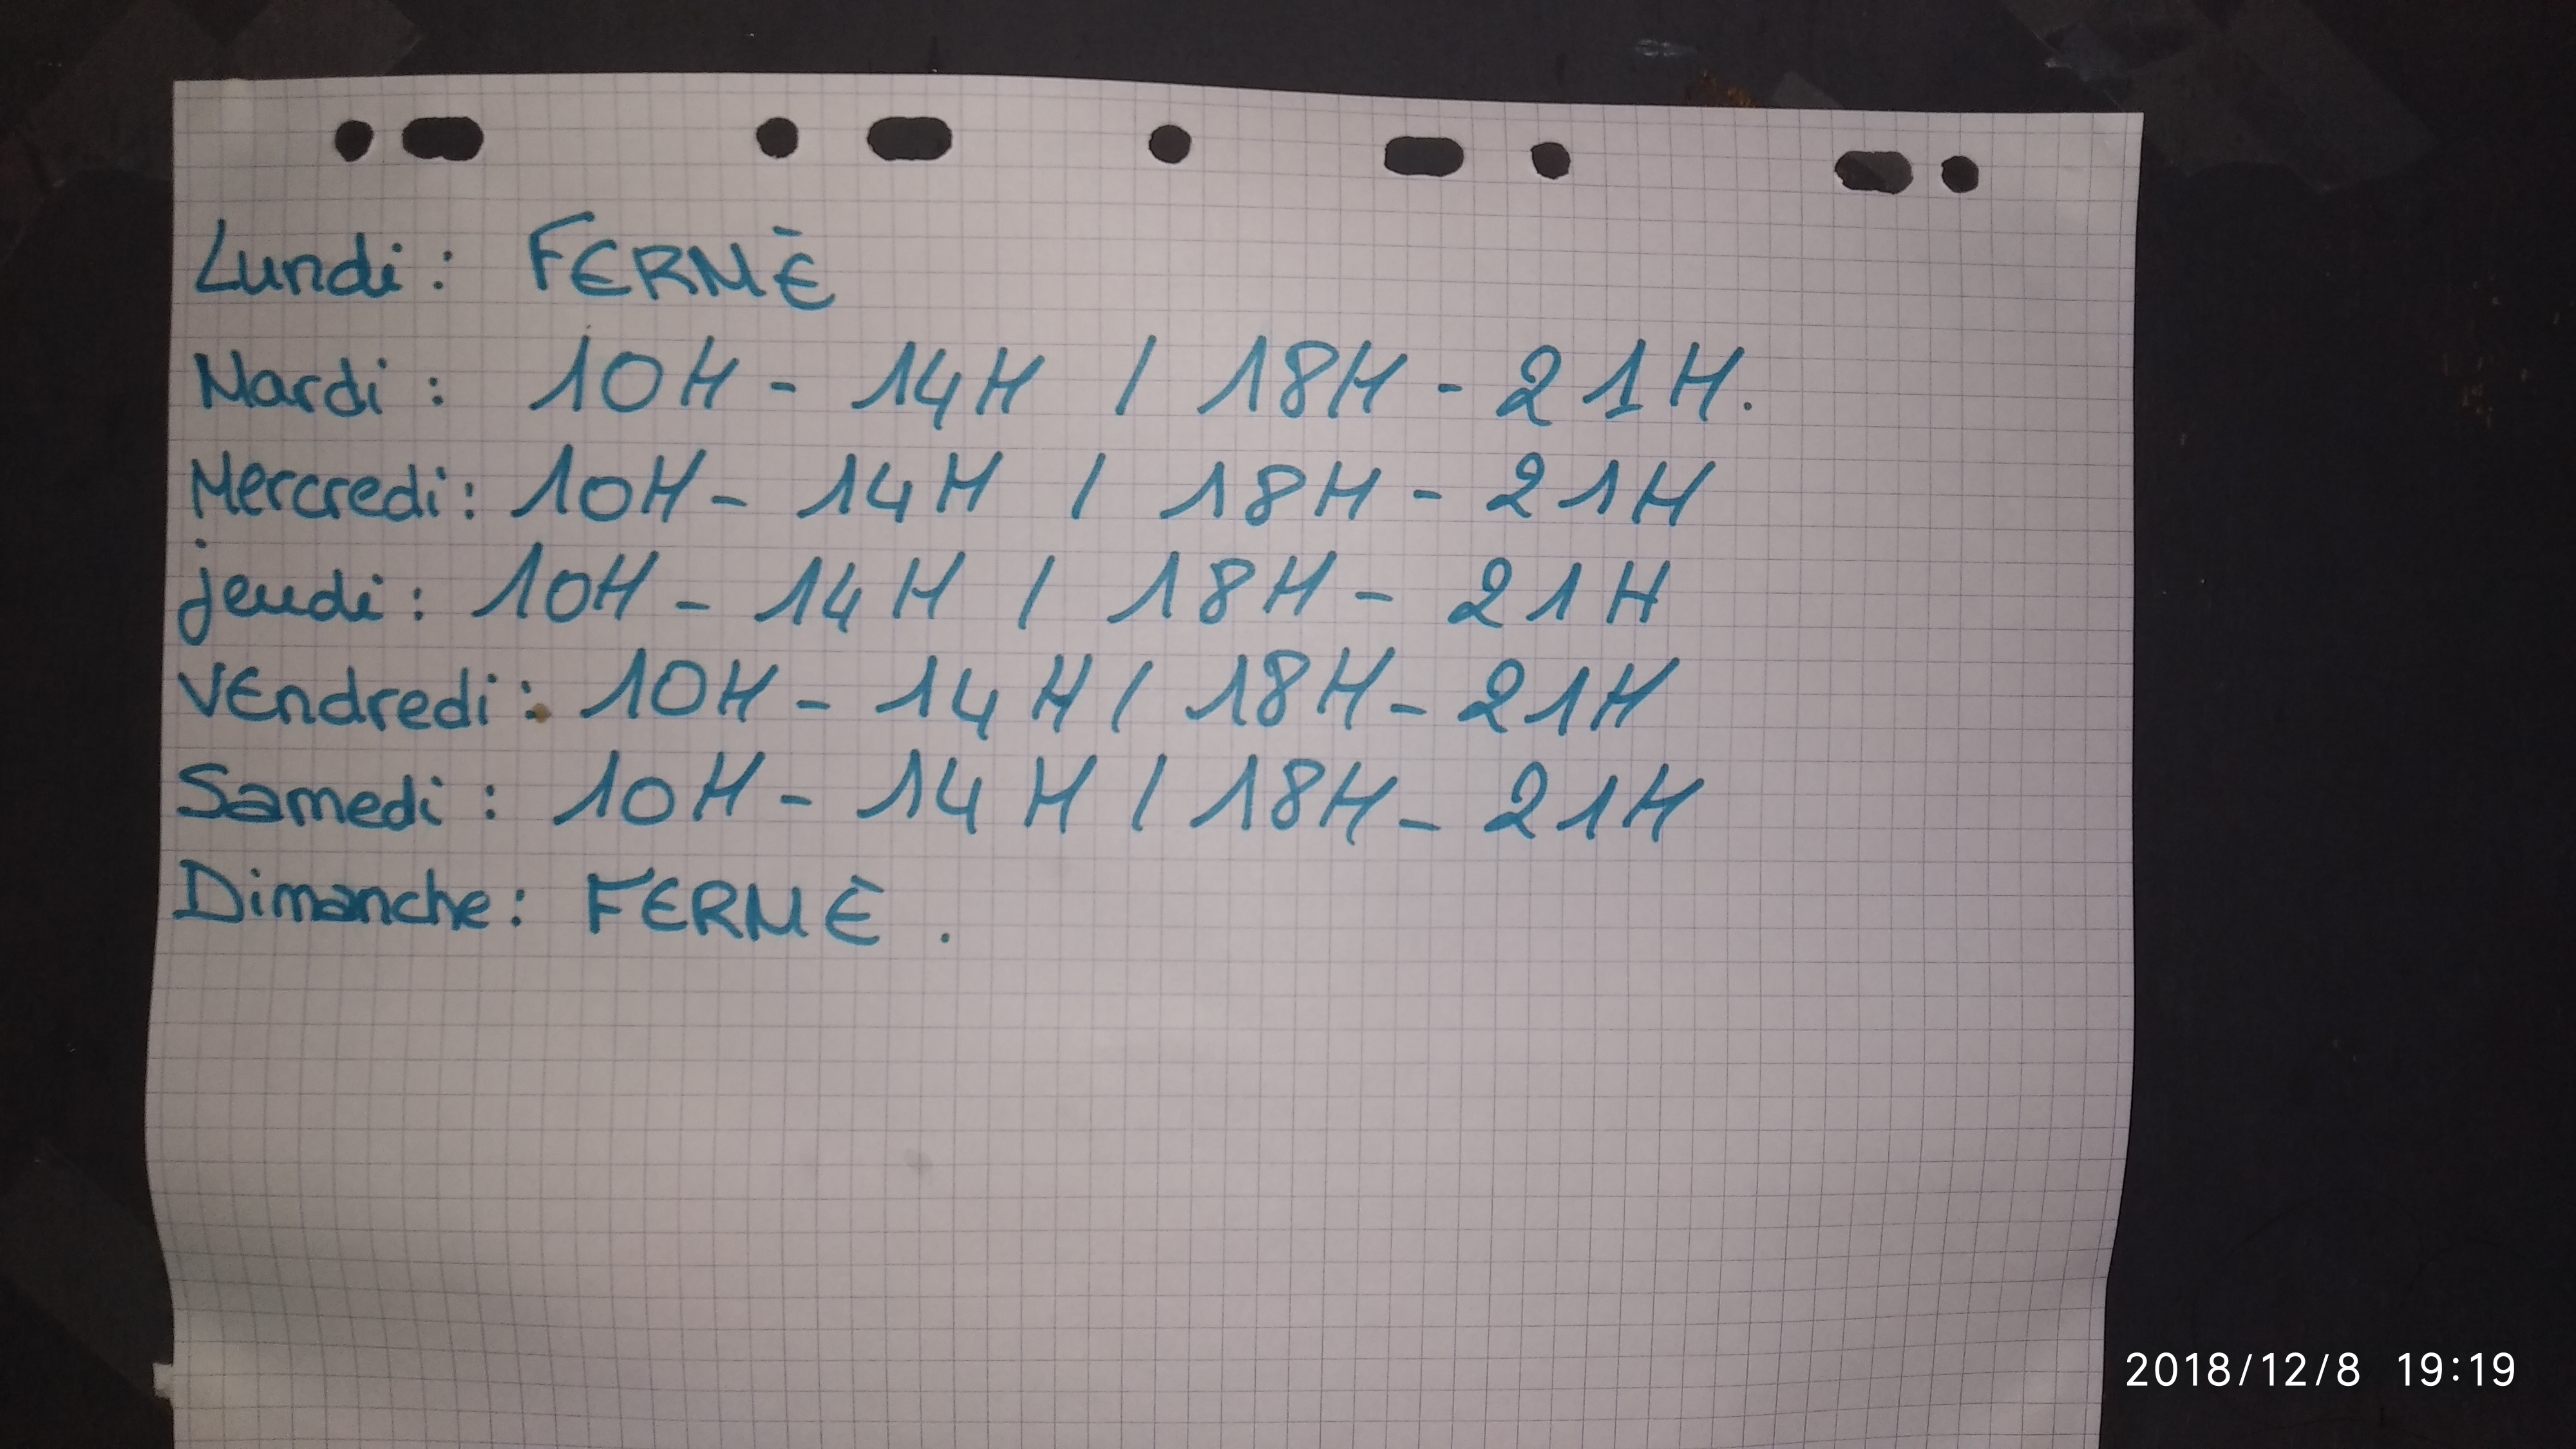 Lundi : FERMÉ
Mardi : 10H - 14H / 18H - 21H.
Mercredi : 10H - 14H / 18H - 21H
jeudi : 10H - 14H / 18H - 21H
VEndredi : 10H - 14H / 18H - 21H
Samedi : 10H - 14H / 18H - 21H
Dimanche : FERMÉ .
2018/12/8 19:19